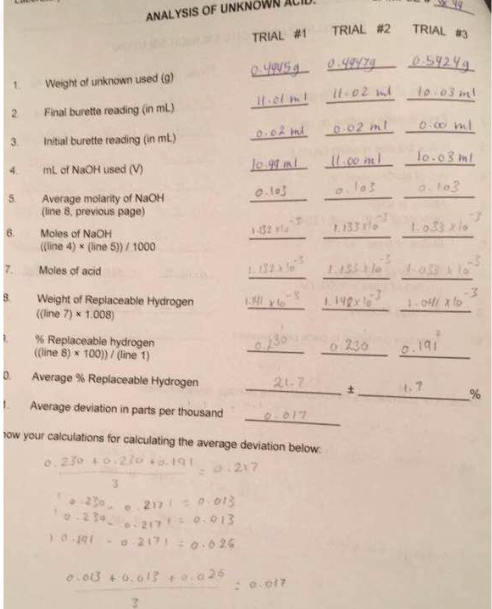 ANALYSIS OF UNKNOWN ACID.
TRIAL #1 TRIAL #2 TRIAL #3
1. Weight of unknown used (g) 0.4945g 0.4947g 0.5424g
2. Final burette reading (in mL) 11.01 ml 11.02 ml 10.03 ml
3. Initial burette reading (in mL) 0.02 ml 0.02 ml 0.00 ml
4. mL of NaOH used (V) 10.99 ml 11.00 ml 10.03 ml
5. Average molarity of NaOH 0.103 0.103 0.103
(line 8, previous page)
6. Moles of NaOH 1.132 x10⁻³ 1.133 x10⁻³ 1.033 x10⁻³
((line 4) × (line 5)) / 1000
7. Moles of acid 1.132 x10⁻³ 1.133 x10⁻³ 1.033 x10⁻³
8. Weight of Replaceable Hydrogen 1.141 x10⁻³ 1.142 x10⁻³ 1.041 x10⁻³
((line 7) × 1.008)
% Replaceable hydrogen 0.230 0.230 0.191
((line 8) × 100)) / (line 1)
0. Average % Replaceable Hydrogen 21.7 ± 1.7 %
Average deviation in parts per thousand 0.017
how your calculations for calculating the average deviation below:
0.230 + 0.230 + 0.191 = 0.217
3
| 0.230 - 0.217 | = 0.013
| 0.230 - 0.217 | = 0.013
| 0.191 - 0.217 | = 0.026
0.013 + 0.013 + 0.026 = 0.017
3